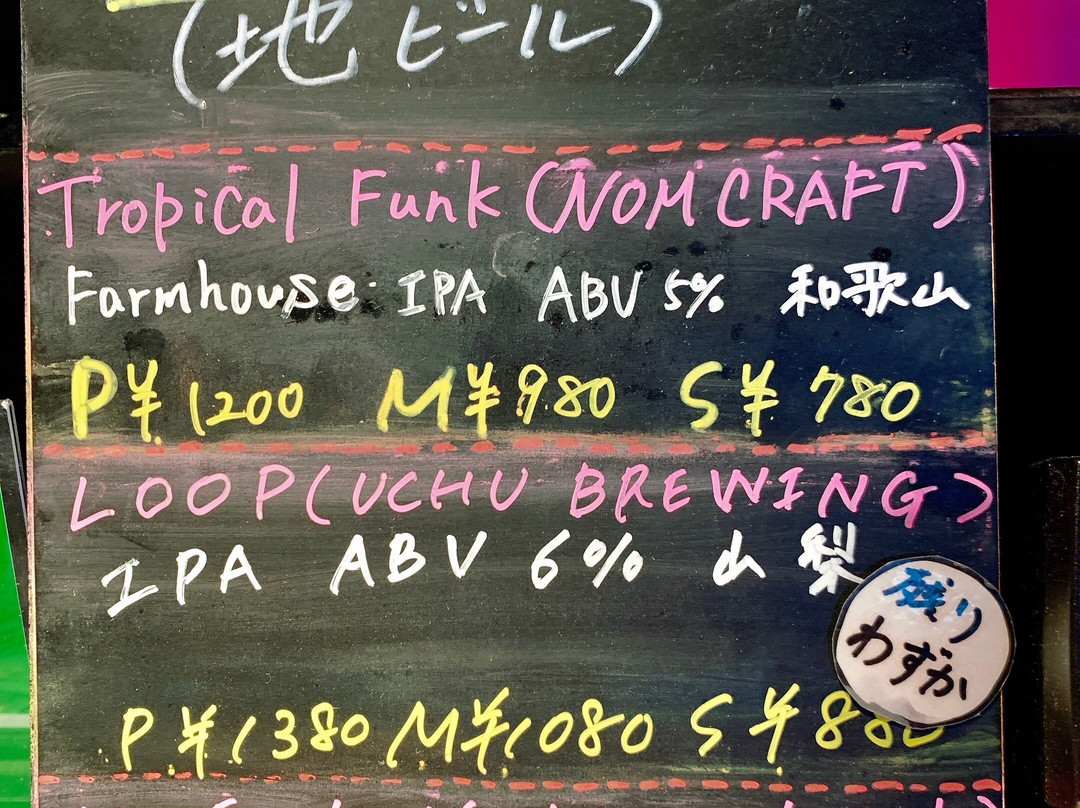 (地ビール)
Tropical Funk (NOM CRAFT)
Farmhouse IPA ABV 5% 和歌山
P¥1200 M¥980 S¥780
LOOP(UCHU BREWING)
IPA ABV 6% 山梨
残り
わずか
P¥1380 M¥1080 S¥880